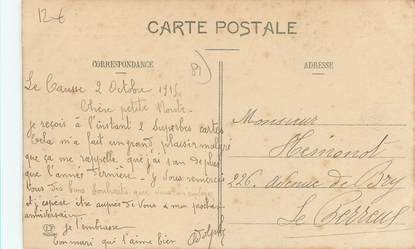 12€
CARTE POSTALE
CORRESPONDANCE
ADRESSE
89
Le Causse 2 Octobre 1915
Chère petite
je reçois à l'instant 2 superbes cartes
Cela m'a fait un grand plaisir malgré
que ça me rappelle que j'ai 1 an de plus
que l'année dernière. Je vous remercie
tous des bons souhaits que
et j'espère être auprès de vous à mon prochain
anniversaire.
je t'embrasse
ton mari qui t'aime bien
Monsieur
Hemonot
226, Avenue de Bry
Le Perreux